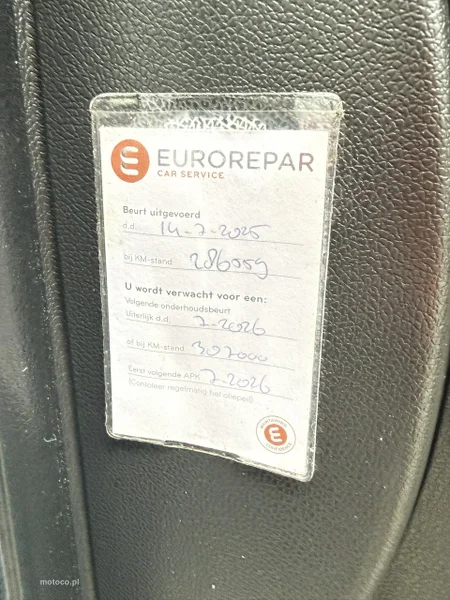 EUROREPAR
CAR SERVICE
Beurt uitgevoerd
d.d. 14-7-2025
bij KM-stand 286559
U wordt verwacht voor een:
Volgende onderhoudsbeurt
Uiterlijk d.d. 7-2026
of bij KM-stand 307000
Eerst volgende APK 7-2026
(Controleer regelmatig het oliepeil)
motoco.pl